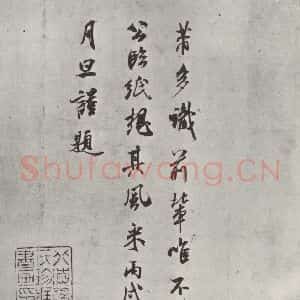 芾多識前輩唯不
公臨紙想其風采丙戌
月旦謹題
Shufawang.CN